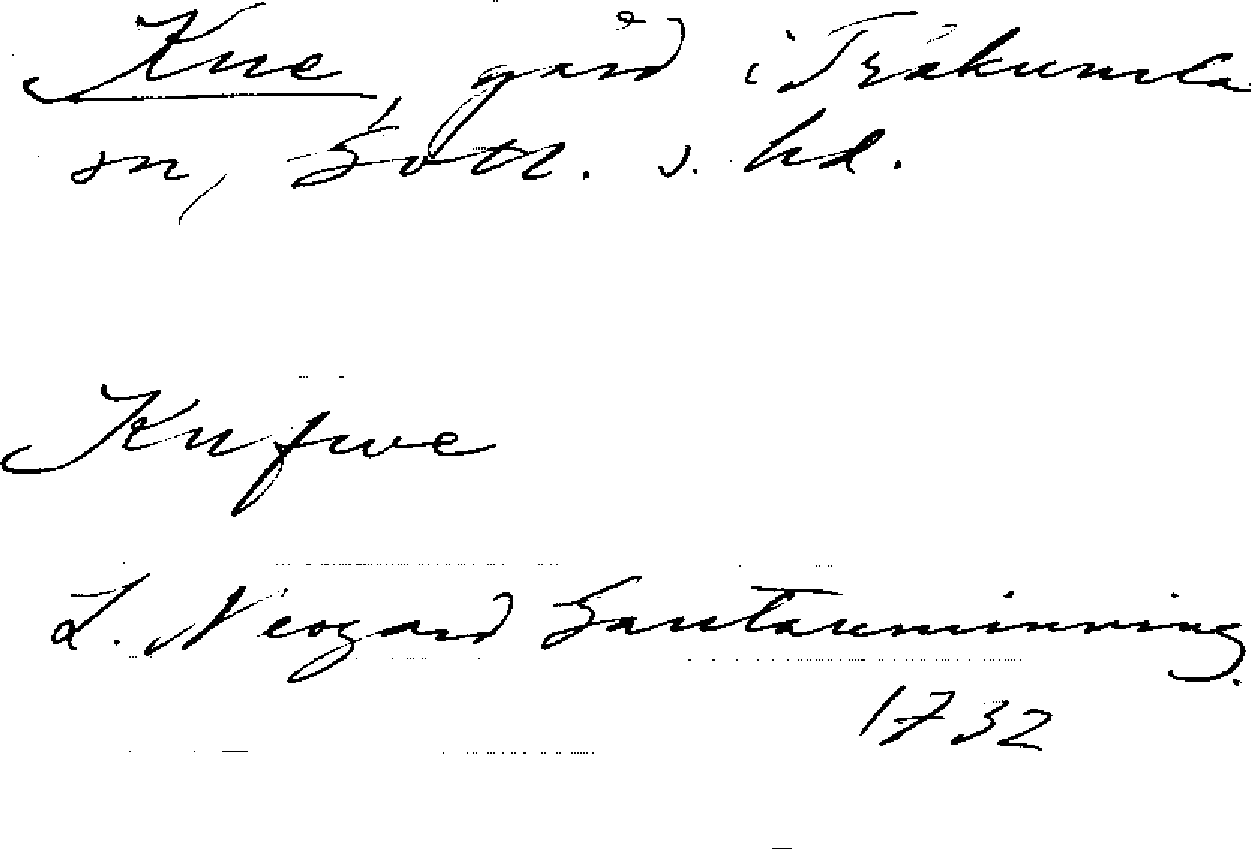 Kue, gård i Träkumla
sn, Gotl. s. hd.
Kufwe
L. Neogard Gautauminning.
1732